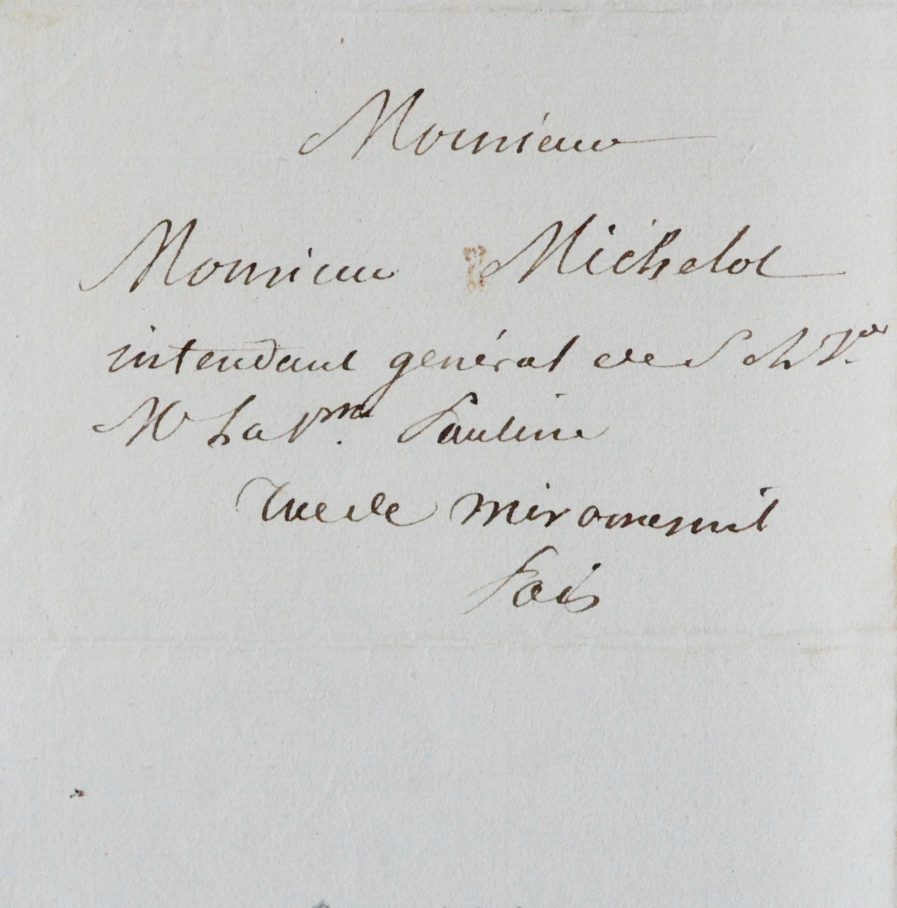 Monsieur
Monsieur Michelot
intendant général de S
M la Pauline
rue de miromesnil